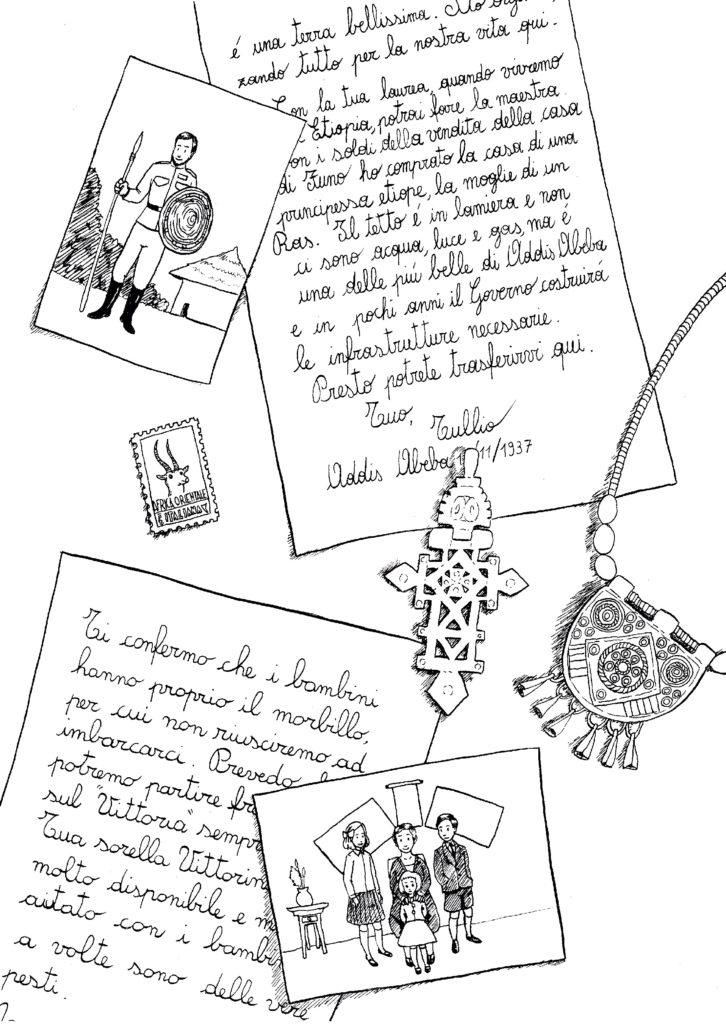 é una terra bellissima. Sto
zando tutto per la nostra vita qui.
Con la tua laurea, quando vivremo
Etiopia, potrai fare la maestra.
Con i soldi della vendita della casa
di Zuno ho comprato la casa di una
principessa etiope, la moglie di un
Ras. Il tetto é in lamiera e non
ci sono acqua, luce e gas, ma é
una delle piú belle di Addis Abeba
e in pochi anni il Governo costruirá
le infrastrutture necessarie.
Presto potrete trasferirvi qui.
Tuo, Tullio
Addis Abeba /11/1937
AFRICA ORIENTALE
ITALIANA
Ti confermo che i bambini
hanno proprio il morbillo,
per cui non riusciremo ad
imbarcarci. Prevedo
potremo partire
sul "Vittoria" sempr
Tua sorella Vittorin
molto disponibile e m
aiutato con i bambi
a volte sono delle vere
pesti.